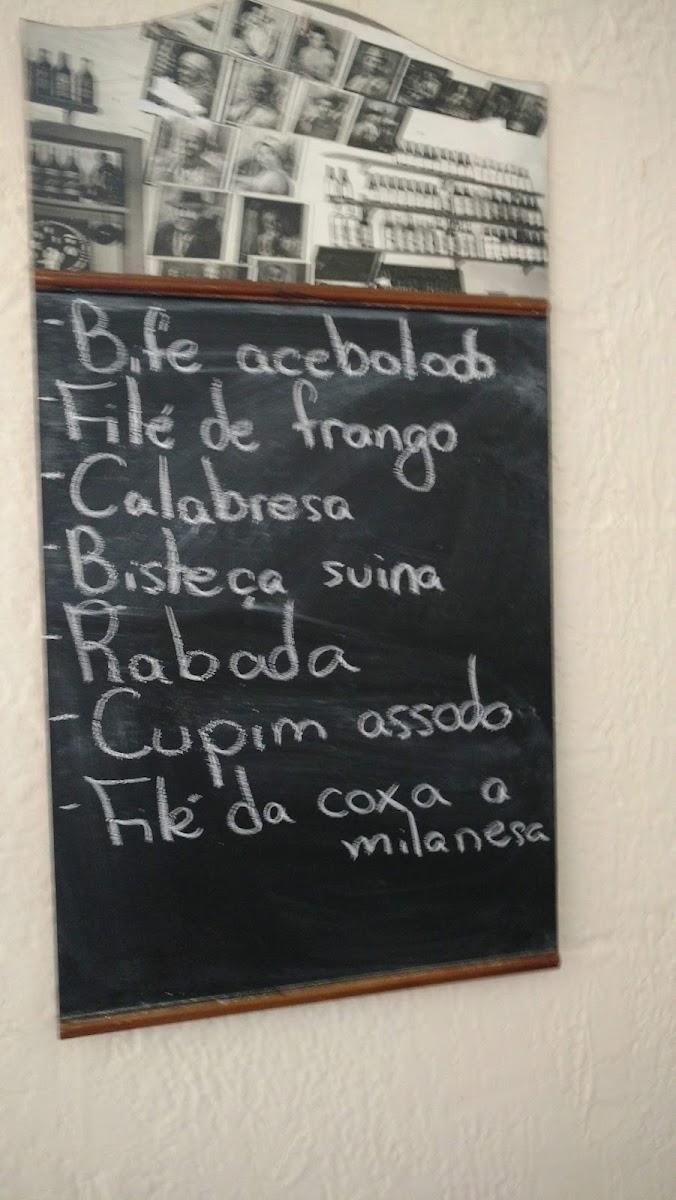 - Bife acebolado
- Filé de frango
- Calabresa
- Bisteça suina
- Rabada
- Cupim assado
- Filé da coxa a
milanesa